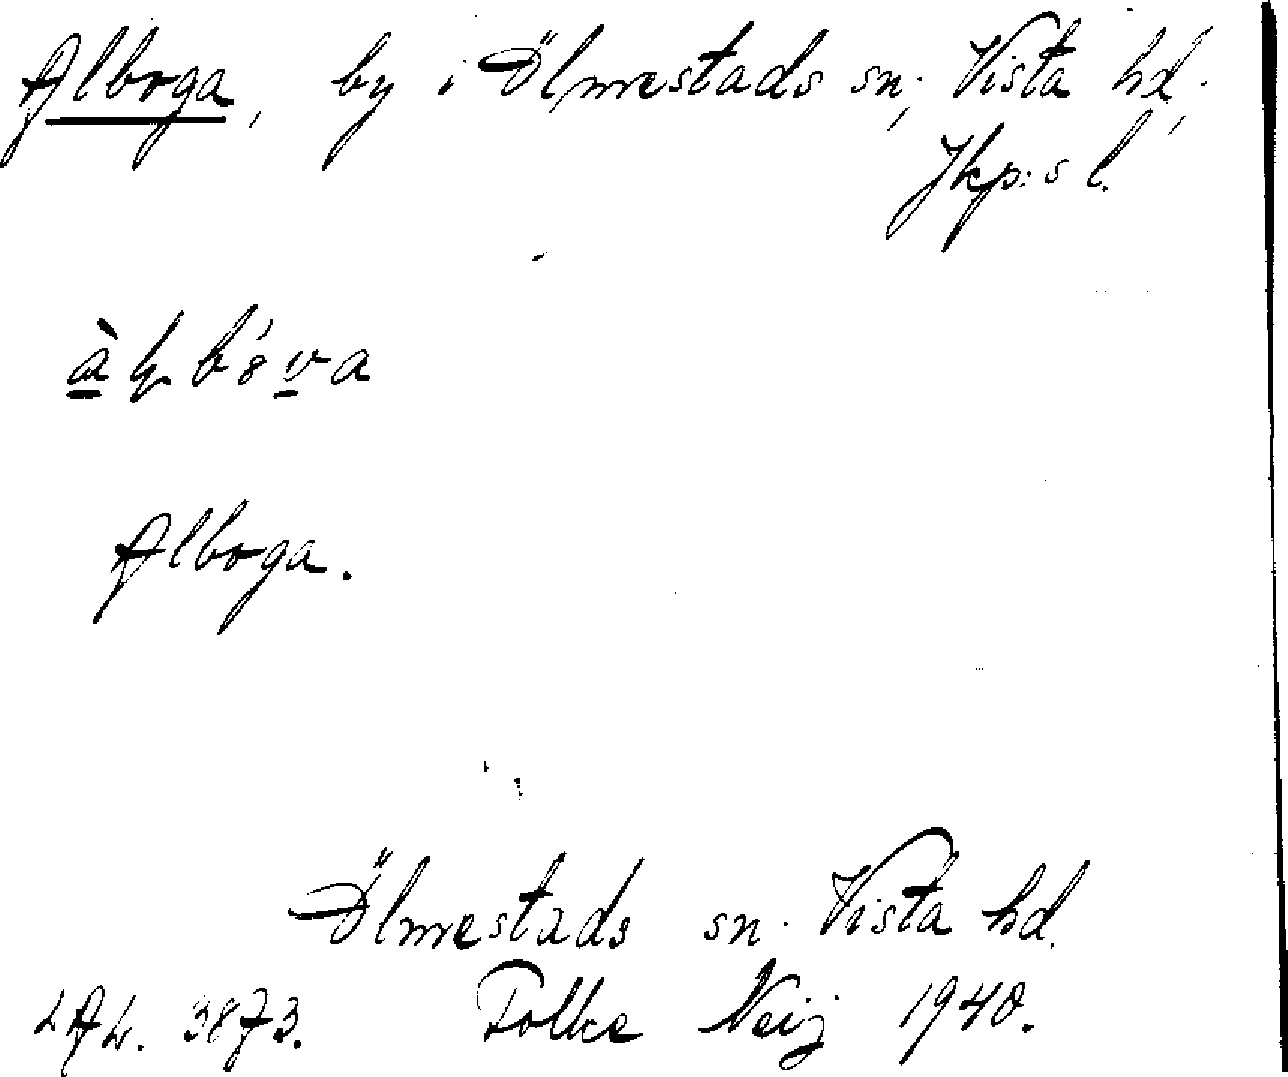 Alboga, by i Ölmestads sn, Vista hd,
Jkp:s l.
Alboga.
Ölmestads sn. Vista hd.
3873. Folke Neij 1940.